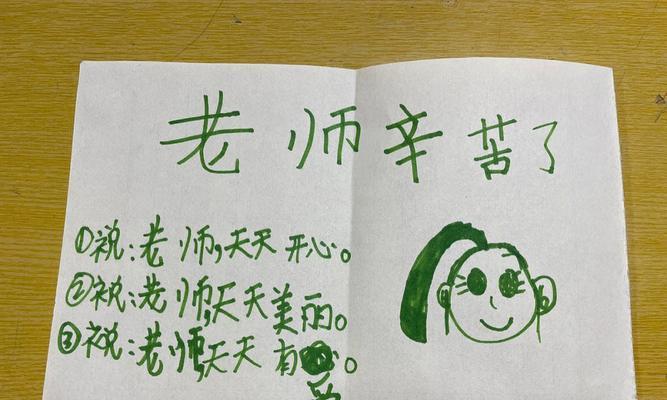 老师辛苦了
①祝:老师,天天开心。
②祝:老师,天天美丽。
③祝:老师,天天有。